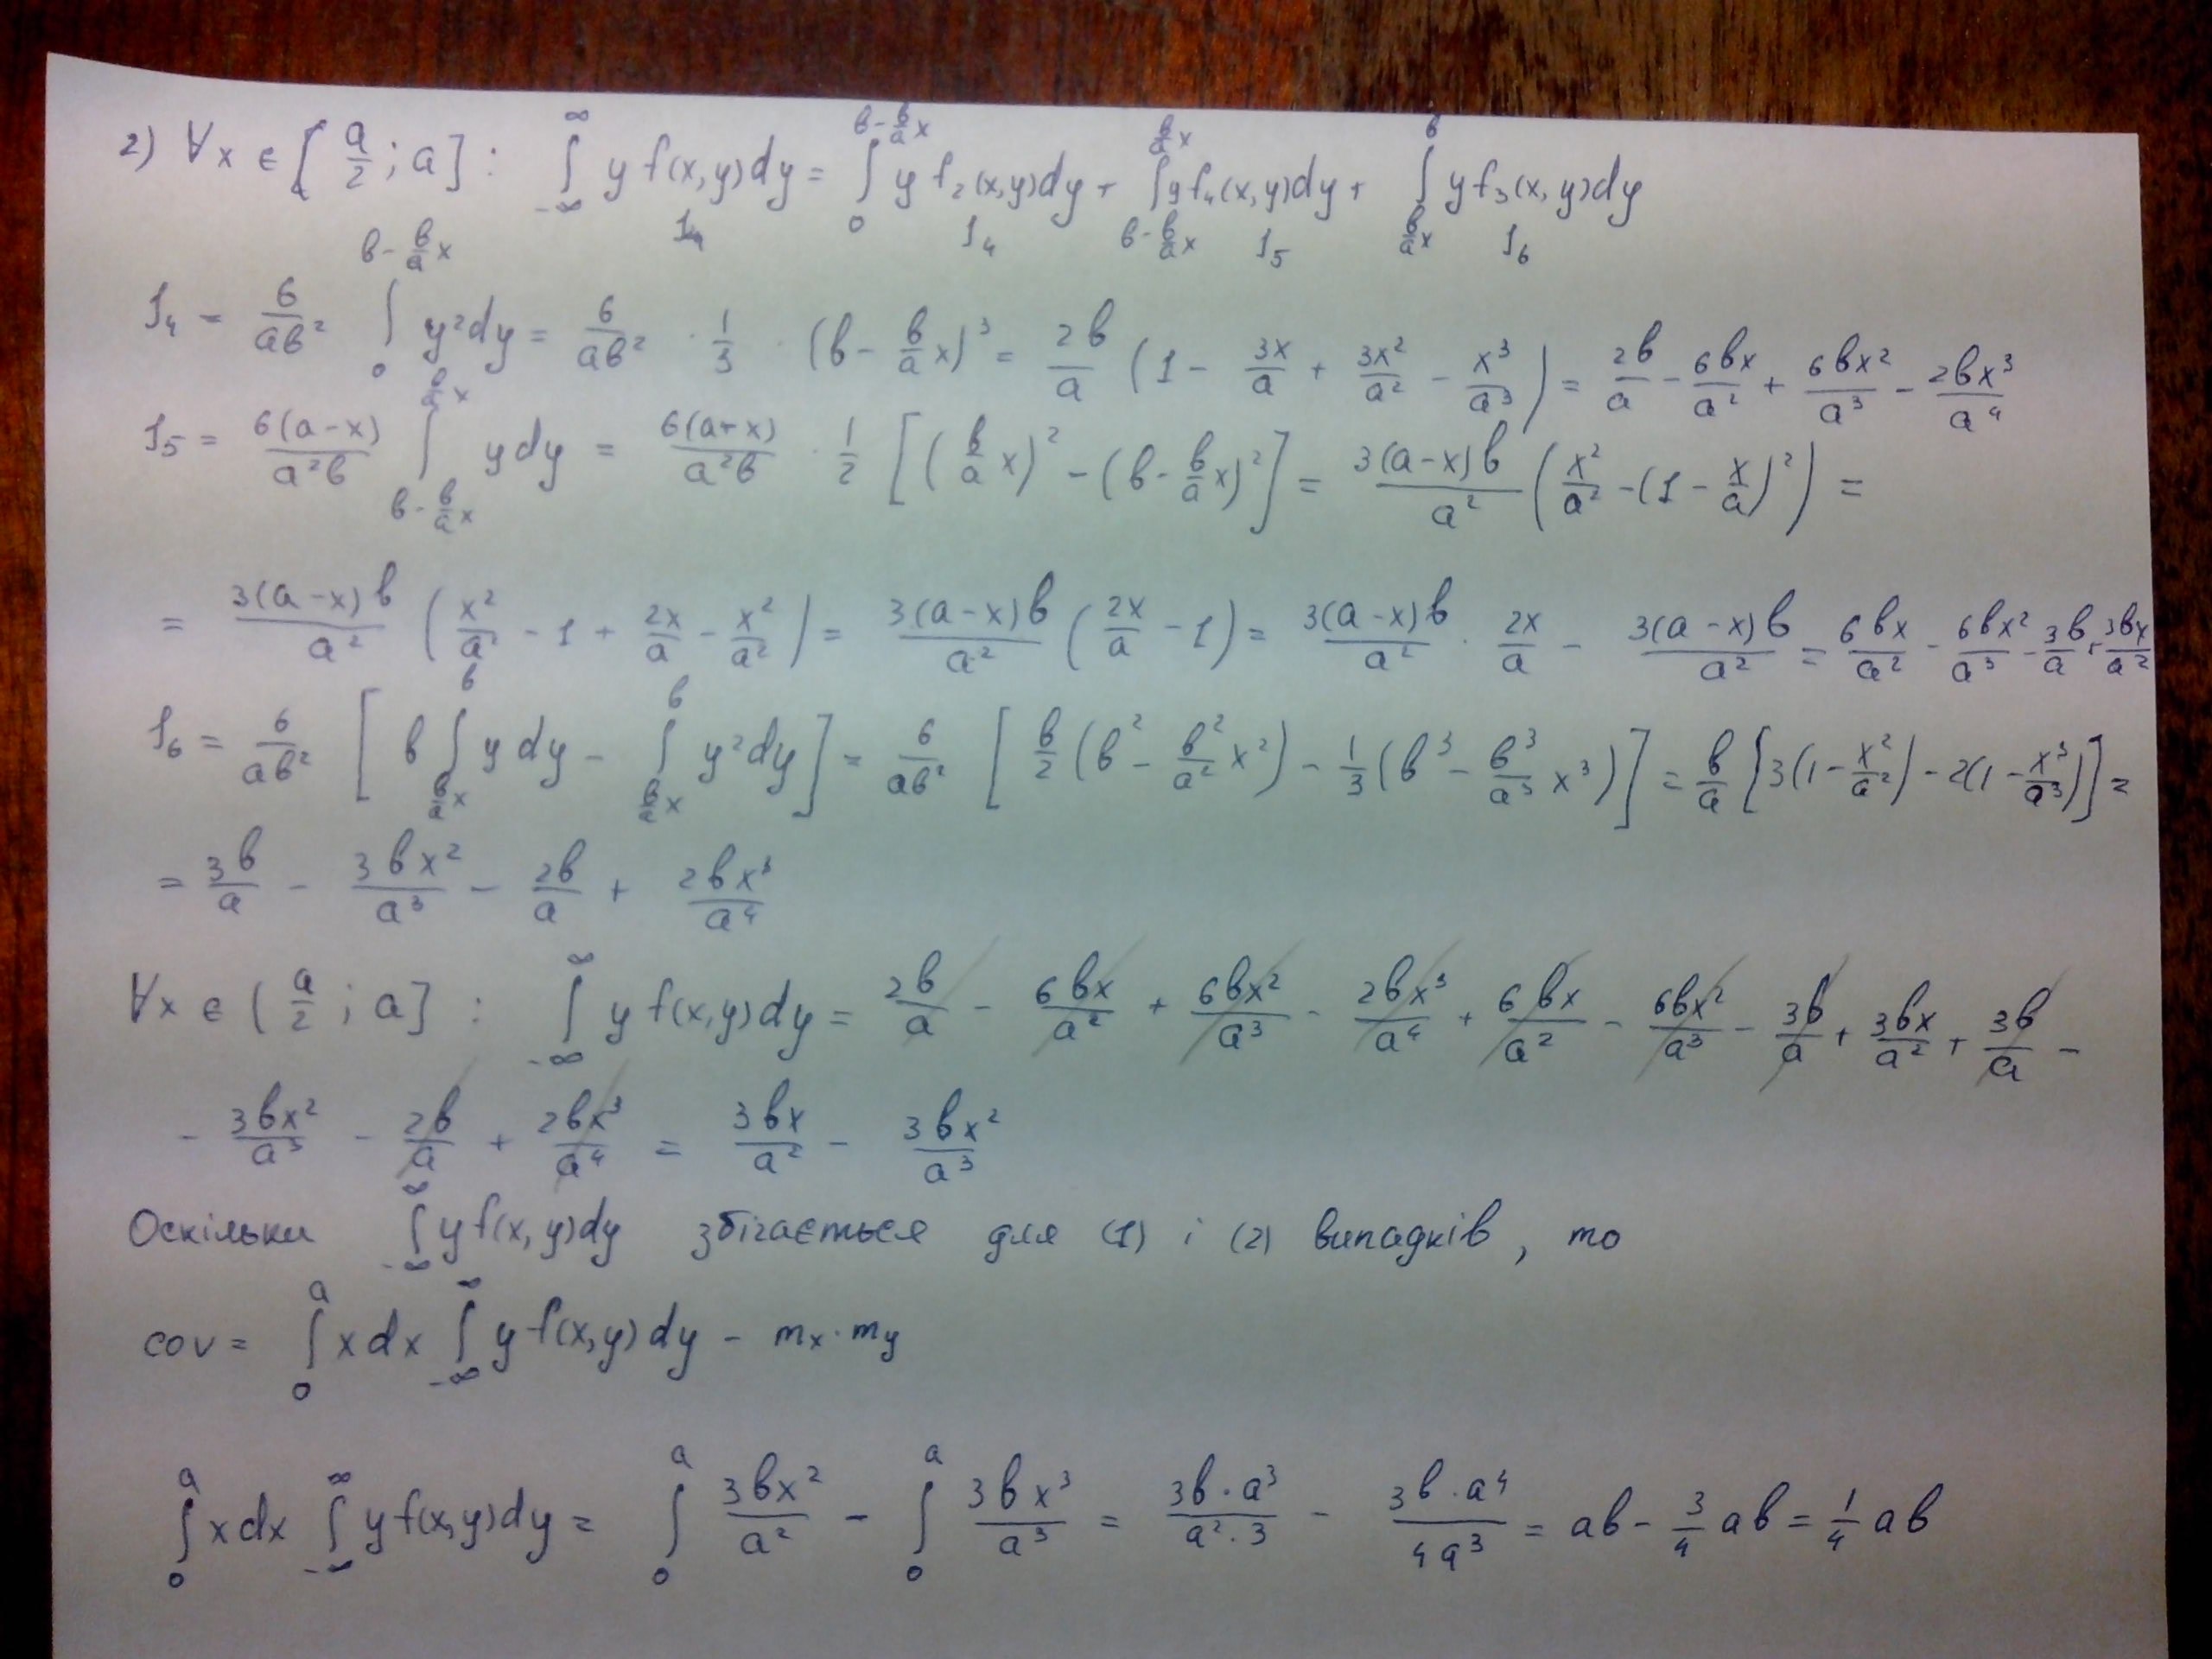 2) ∀x ∈ [a/2 ; a] : ∫_{-∞}^{∞} y f(x,y)dy = ∫_0^{b - b/a x} y f₂(x,y)dy + ∫_{b - b/a x}^{b/a x} y f₄(x,y)dy + ∫_{b/a x}^{b} y f₃(x,y)dy
I₄ I₅ I₆
I₄ = 6/(ab²) ∫_0^{b - b/a x} y²dy = 6/(ab²) · 1/3 · (b - b/a x)³ = 2b/a (1 - 3x/a + 3x²/a² - x³/a³) = 2b/a - 6bx/a² + 6bx²/a³ - 2bx³/a⁴
I₅ = 6(a-x)/(a²b) ∫_{b - b/a x}^{b/a x} y dy = 6(a-x)/(a²b) · 1/2 [(b/a x)² - (b - b/a x)²] = 3(a-x)b/a² (x²/a² - (1 - x/a)²) =
= 3(a-x)b/a² (x²/a² - 1 + 2x/a - x²/a²) = 3(a-x)b/a² (2x/a - 1) = 3(a-x)b/a² · 2x/a - 3(a-x)b/a² = 6bx/a² - 6bx²/a³ - 3b/a + 3bx/a²
I₆ = 6/(ab²) [b ∫_{b/a x}^{b} y dy - ∫_{b/a x}^{b} y²dy] = 6/(ab²) [b/2 (b² - b²/a² x²) - 1/3 (b³ - b³/a³ x³)] = b/a [3(1 - x²/a²) - 2(1 - x³/a³)] =
= 3b/a - 3bx²/a³ - 2b/a + 2bx³/a⁴
∀x ∈ (a/2 ; a] : ∫_{-∞}^{∞} y f(x,y)dy = 2b/a - 6bx/a² + 6bx²/a³ - 2bx³/a⁴ + 6bx/a² - 6bx²/a³ - 3b/a + 3bx/a² + 3b/a -
- 3bx²/a³ - 2b/a + 2bx³/a⁴ = 3bx/a² - 3bx²/a³
Оскільки ∫_{-∞}^{∞} y f(x,y)dy збігається для (1) і (2) випадків, то
cov = ∫_0^a x dx ∫_{-∞}^{∞} y f(x,y)dy - mₓ · m_y
∫_0^a x dx ∫_{-∞}^{∞} y f(x,y)dy = ∫_0^a 3bx²/a² - ∫_0^a 3bx³/a³ = 3b·a³/(a²·3) - 3b·a⁴/(4a³) = ab - 3/4 ab = 1/4 ab